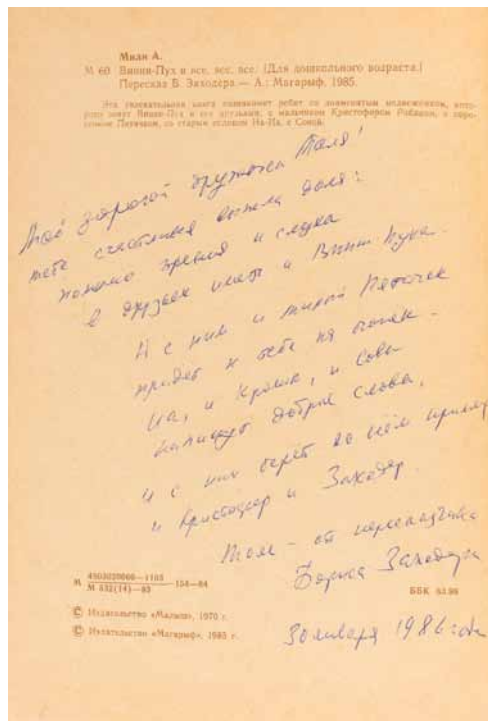 Милн А.
М 60 Винни-Пух и все, все, все. (Для дошкольного возраста.)
Пересказ Б. Заходера — А.: Магарыф, 1985.
Эта увлекательная книга познакомит ребят со знаменитым медвежонком, кото-
рого зовут Винни-Пух и его друзьями: с мальчиком Кристофером Робином, с поро-
сенком Пятачком, со старым осликом Иа-Иа, с Совой.
Мой дорогой дружочек Толя!
тебе счастливая выпала доля:
помимо зрения и слуха
в друзьях иметь и Винни-Пуха.
И с ним и милый Пяточек
придет к тебе на огонек —
Иа, и Крошка, и Сова
напишут добрые слова,
и с них берёт во всём пример
и Кристофер и Заходер.
от пересказчика
Бориса Заходера
30 января 1986 года
М 4803020000—1103 154—84
М 532(14)—85
ББК
© Издательство «Малыш», 1970 г.
© Издательство «Магарыф», 1985 г.